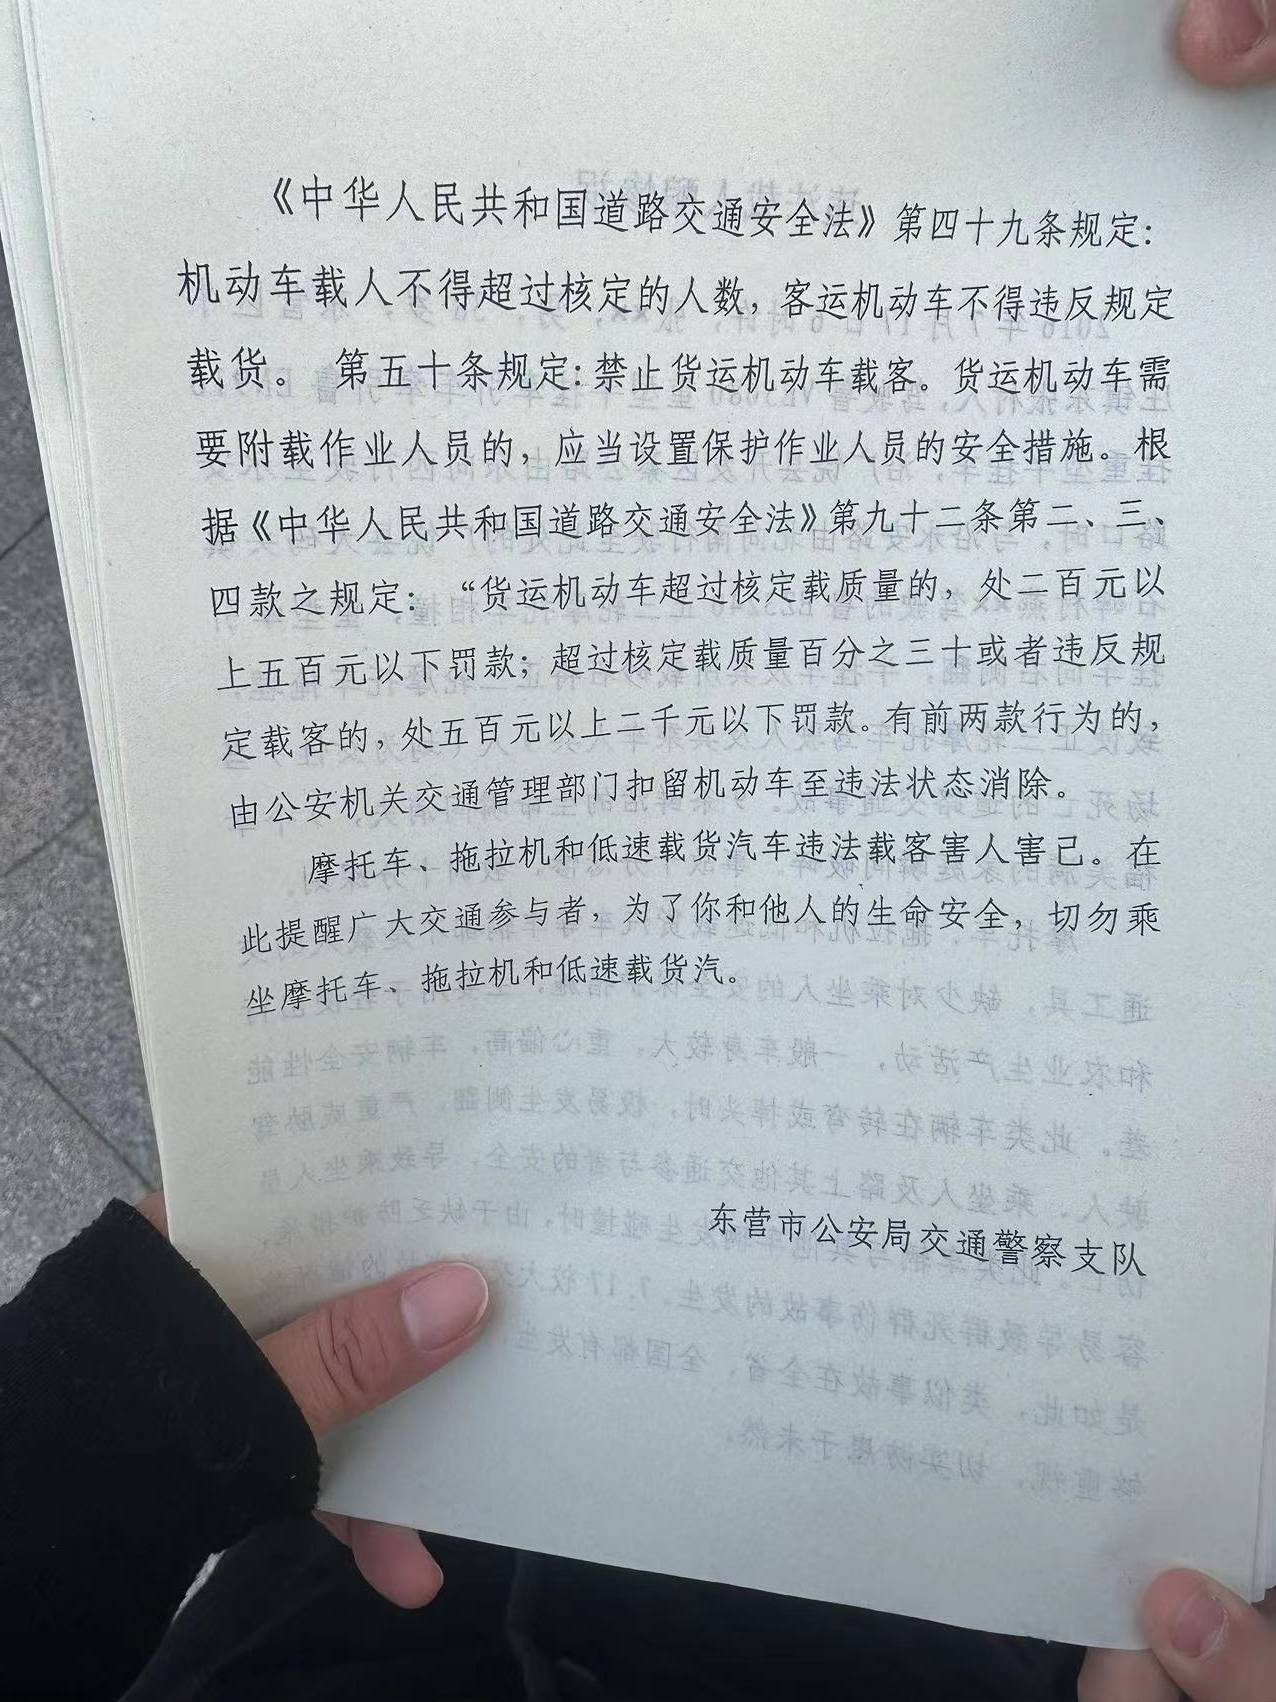 《中华人民共和国道路交通安全法》第四十九条规定：
机动车载人不得超过核定的人数，客运机动车不得违反规定
载货。 第五十条规定：禁止货运机动车载客。货运机动车需
要附载作业人员的，应当设置保护作业人员的安全措施。根
据《中华人民共和国道路交通安全法》第九十二条第二、三、
四款之规定：“货运机动车超过核定载质量的，处二百元以
上五百元以下罚款；超过核定载质量百分之三十或者违反规
定载客的，处五百元以上二千元以下罚款。有前两款行为的，
由公安机关交通管理部门扣留机动车至违法状态消除。
摩托车、拖拉机和低速载货汽车违法载客害人害己。在
此提醒广大交通参与者，为了你和他人的生命安全，切勿乘
坐摩托车、拖拉机和低速载货汽。
东营市公安局交通警察支队